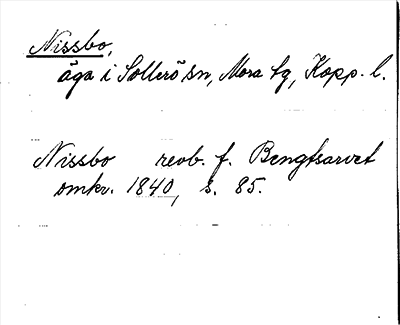 Nissbo,
äga i Sollerö sn, Mora tg, Kopp. l.
Nissbo revb. f. Bengtsarvet
omkr. 1840, s. 85.